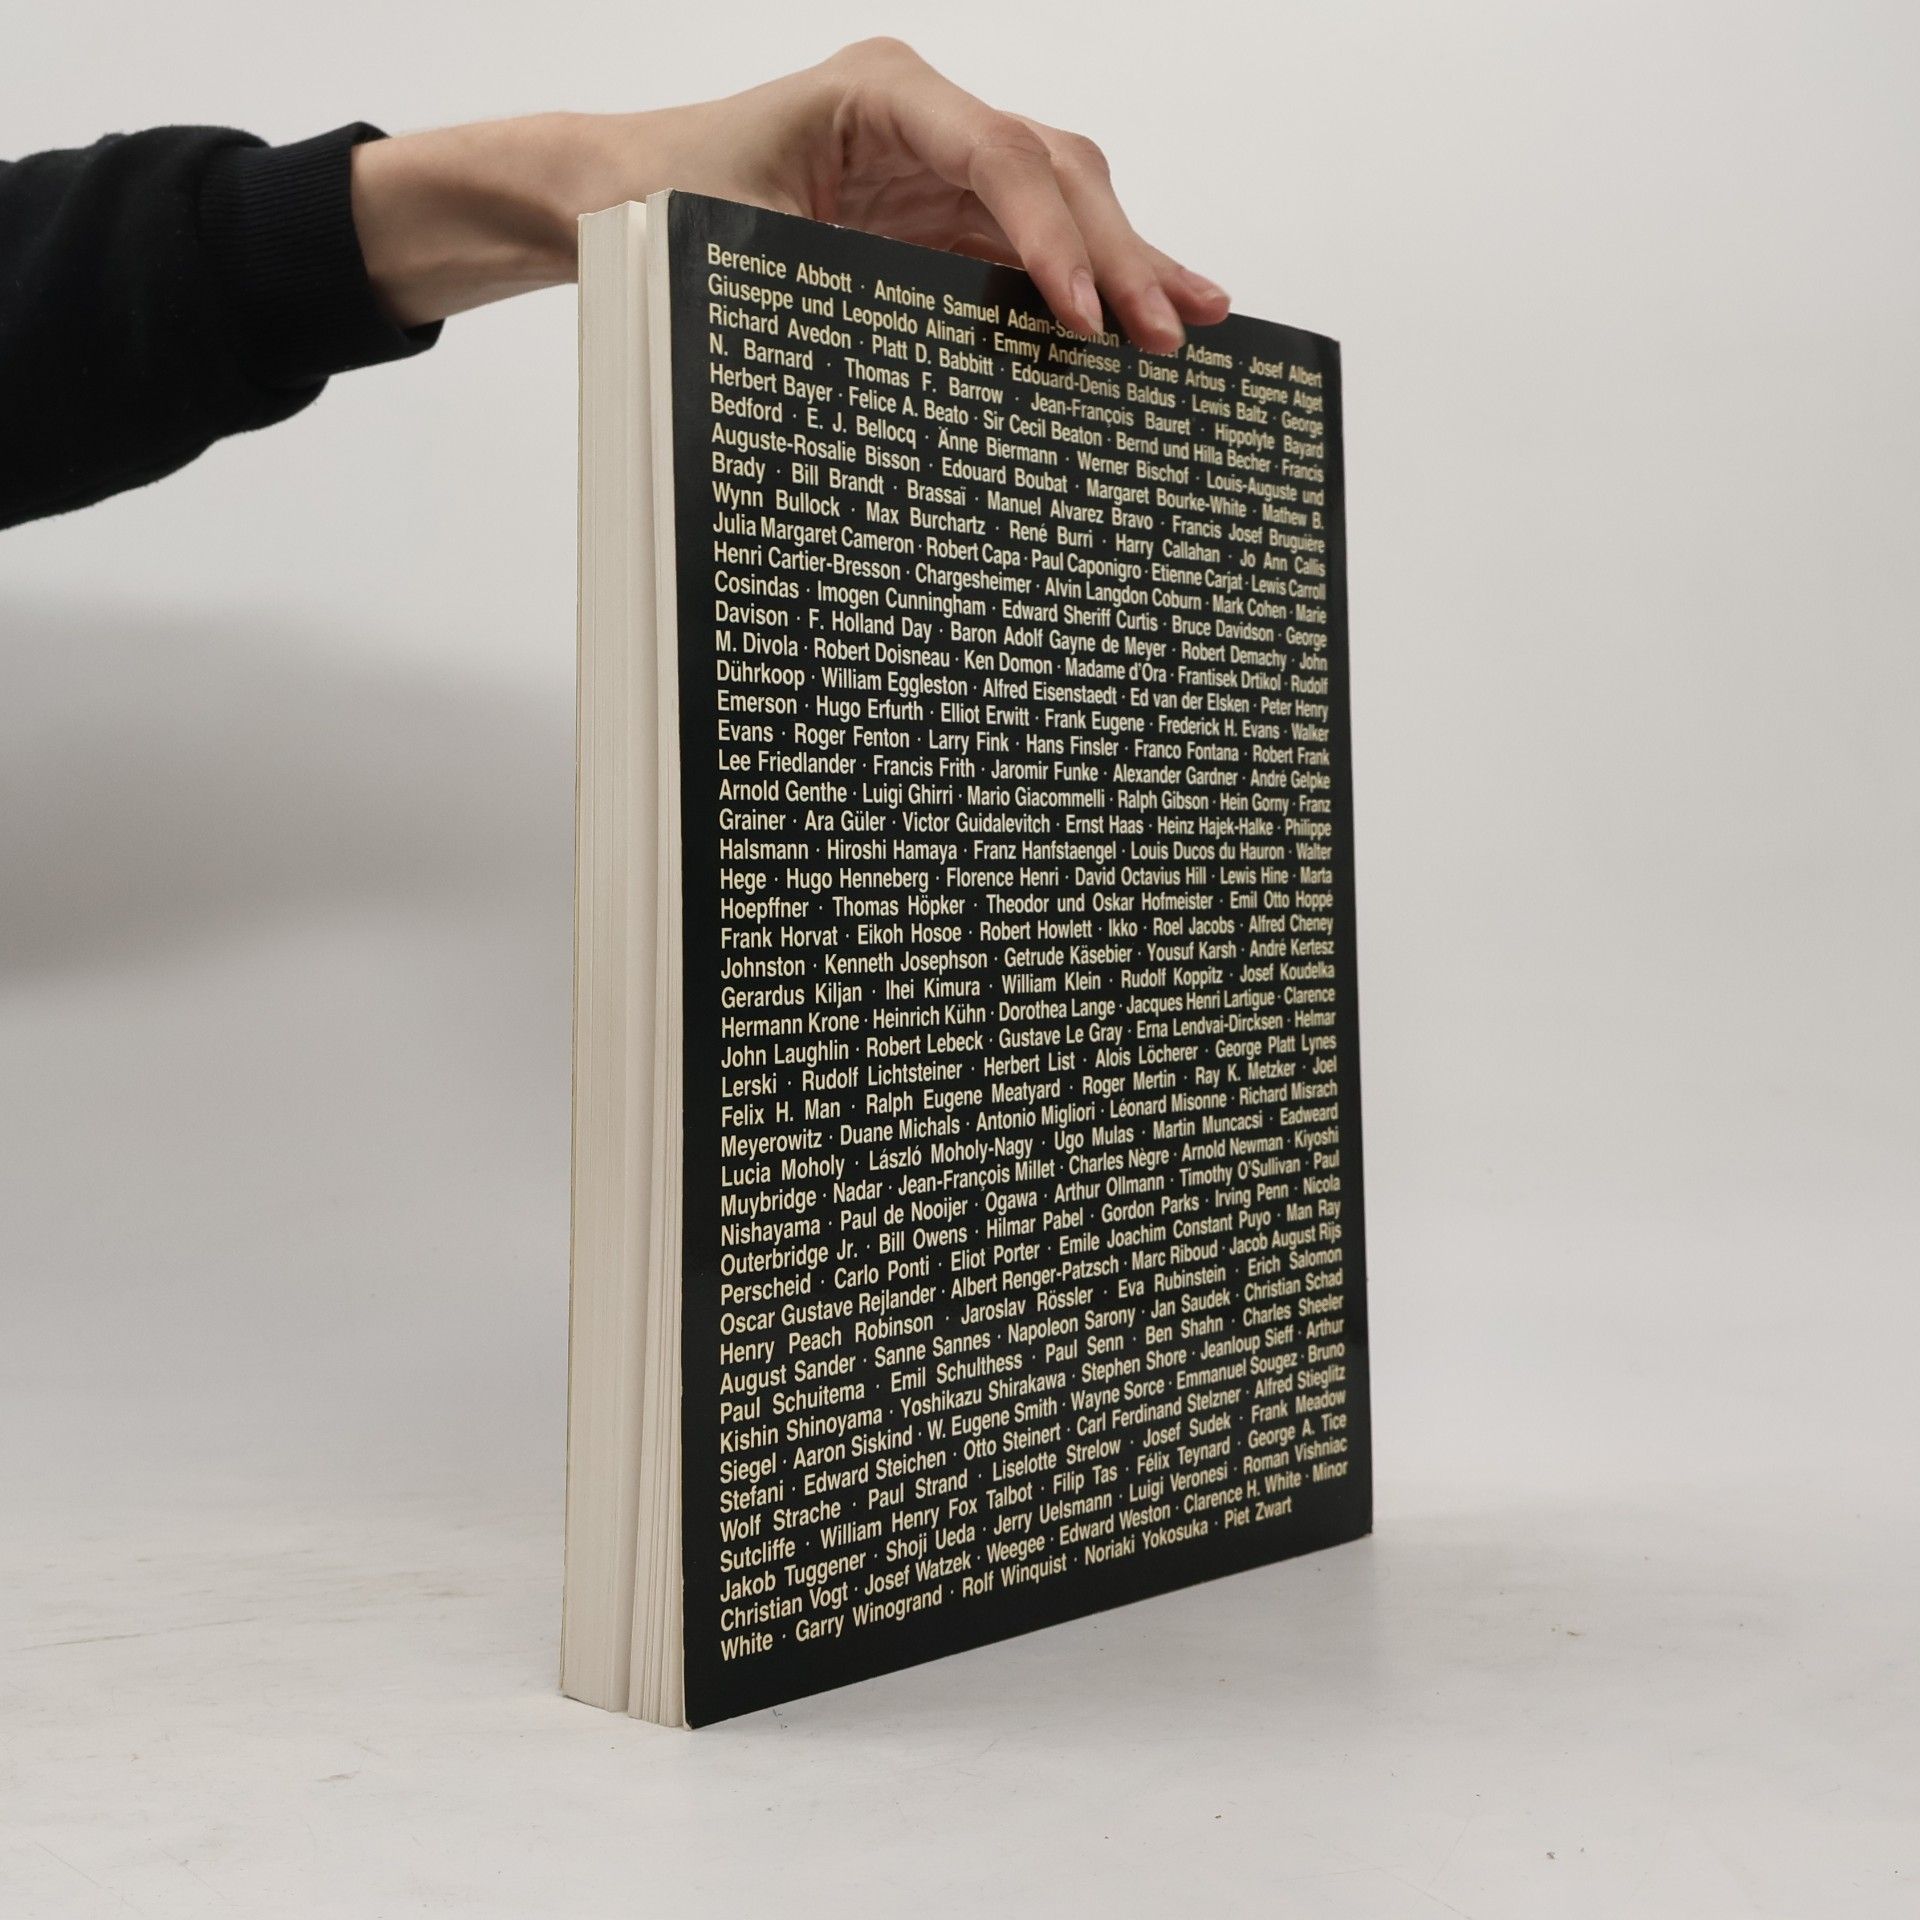 Berenice Abbott · Antoine Samuel Adam-Salomon · Adams · Josef Albert
Giuseppe und Leopoldo Alinari · Emmy Andriesse · Diane Arbus · Eugene Atget
Richard Avedon · Platt D. Babbitt · Edouard-Denis Baldus · Lewis Baltz · George
N. Barnard · Thomas F. Barrow · Jean-François Bauret · Hippolyte Bayard
Herbert Bayer · Felice A. Beato · Sir Cecil Beaton · Bernd und Hilla Becher · Francis
Bedford · E. J. Bellocq · Änne Biermann · Werner Bischof · Louis-Auguste und
Auguste-Rosalie Bisson · Edouard Boubat · Margaret Bourke-White · Mathew B.
Brady · Bill Brandt · Brassaï · Manuel Alvarez Bravo · Francis Josef Bruguière
Wynn Bullock · Max Burchartz · René Burri · Harry Callahan · Jo Ann Callis
Julia Margaret Cameron · Robert Capa · Paul Caponigro · Etienne Carjat · Lewis Carroll
Henri Cartier-Bresson · Chargesheimer · Alvin Langdon Coburn · Mark Cohen · Marie
Cosindas · Imogen Cunningham · Edward Sheriff Curtis · Bruce Davidson · George
Davison · F. Holland Day · Baron Adolf Gayne de Meyer · Robert Demachy · John
M. Divola · Robert Doisneau · Ken Domon · Madame d'Ora · Frantisek Drtikol · Rudolf
Dührkoop · William Eggleston · Alfred Eisenstaedt · Ed van der Elsken · Peter Henry
Emerson · Hugo Erfurth · Elliot Erwitt · Frank Eugene · Frederick H. Evans · Walker
Evans · Roger Fenton · Larry Fink · Hans Finsler · Franco Fontana · Robert Frank
Lee Friedlander · Francis Frith · Jaromir Funke · Alexander Gardner · André Gelpke
Arnold Genthe · Luigi Ghirri · Mario Giacommelli · Ralph Gibson · Hein Gorny · Franz
Grainer · Ara Güler · Victor Guidalevitch · Ernst Haas · Heinz Hajek-Halke · Philippe
Halsmann · Hiroshi Hamaya · Franz Hanfstaengel · Louis Ducos du Hauron · Walter
Hege · Hugo Henneberg · Florence Henri · David Octavius Hill · Lewis Hine · Marta
Hoepffner · Thomas Höpker · Theodor und Oskar Hofmeister · Emil Otto Hoppé
Frank Horvat · Eikoh Hosoe · Robert Howlett · Ikko · Roel Jacobs · Alfred Cheney
Johnston · Kenneth Josephson · Getrude Käsebier · Yousuf Karsh · André Kertesz
Gerardus Kiljan · Ihei Kimura · William Klein · Rudolf Koppitz · Josef Koudelka
Hermann Krone · Heinrich Kühn · Dorothea Lange · Jacques Henri Lartigue · Clarence
John Laughlin · Robert Lebeck · Gustave Le Gray · Erna Lendvai-Dircksen · Helmar
Lerski · Rudolf Lichtsteiner · Herbert List · Alois Löcherer · George Platt Lynes
Felix H. Man · Ralph Eugene Meatyard · Roger Mertin · Ray K. Metzker · Joel
Meyerowitz · Duane Michals · Antonio Migliori · Léonard Misonne · Richard Misrach
Lucia Moholy · László Moholy-Nagy · Ugo Mulas · Martin Muncacsi · Eadweard
Muybridge · Nadar · Jean-François Millet · Charles Nègre · Arnold Newman · Kiyoshi
Nishayama · Paul de Nooijer · Ogawa · Arthur Ollmann · Timothy O'Sullivan · Paul
Outerbridge Jr. · Bill Owens · Hilmar Pabel · Gordon Parks · Irving Penn · Nicola
Perscheid · Carlo Ponti · Eliot Porter · Emile Joachim Constant Puyo · Man Ray
Oscar Gustave Rejlander · Albert Renger-Patzsch · Marc Riboud · Jacob August Rijs
Henry Peach Robinson · Jaroslav Rössler · Eva Rubinstein · Erich Salomon
August Sander · Sanne Sannes · Napoleon Sarony · Jan Saudek · Christian Schad
Paul Schuitema · Emil Schulthess · Paul Senn · Ben Shahn · Charles Sheeler
Kishin Shinoyama · Yoshikazu Shirakawa · Stephen Shore · Jeanloup Sieff · Arthur
Siegel · Aaron Siskind · W. Eugene Smith · Wayne Sorce · Emmanuel Sougez · Bruno
Stefani · Edward Steichen · Otto Steinert · Carl Ferdinand Stelzner · Alfred Stieglitz
Wolf Strache · Paul Strand · Liselotte Strelow · Josef Sudek · Frank Meadow
Sutcliffe · William Henry Fox Talbot · Filip Tas · Félix Teynard · George A. Tice
Jakob Tuggener · Shoji Ueda · Jerry Uelsmann · Luigi Veronesi · Roman Vishniac
Christian Vogt · Josef Watzek · Weegee · Edward Weston · Clarence H. White · Minor
White · Garry Winogrand · Rolf Winquist · Noriaki Yokosuka · Piet Zwart